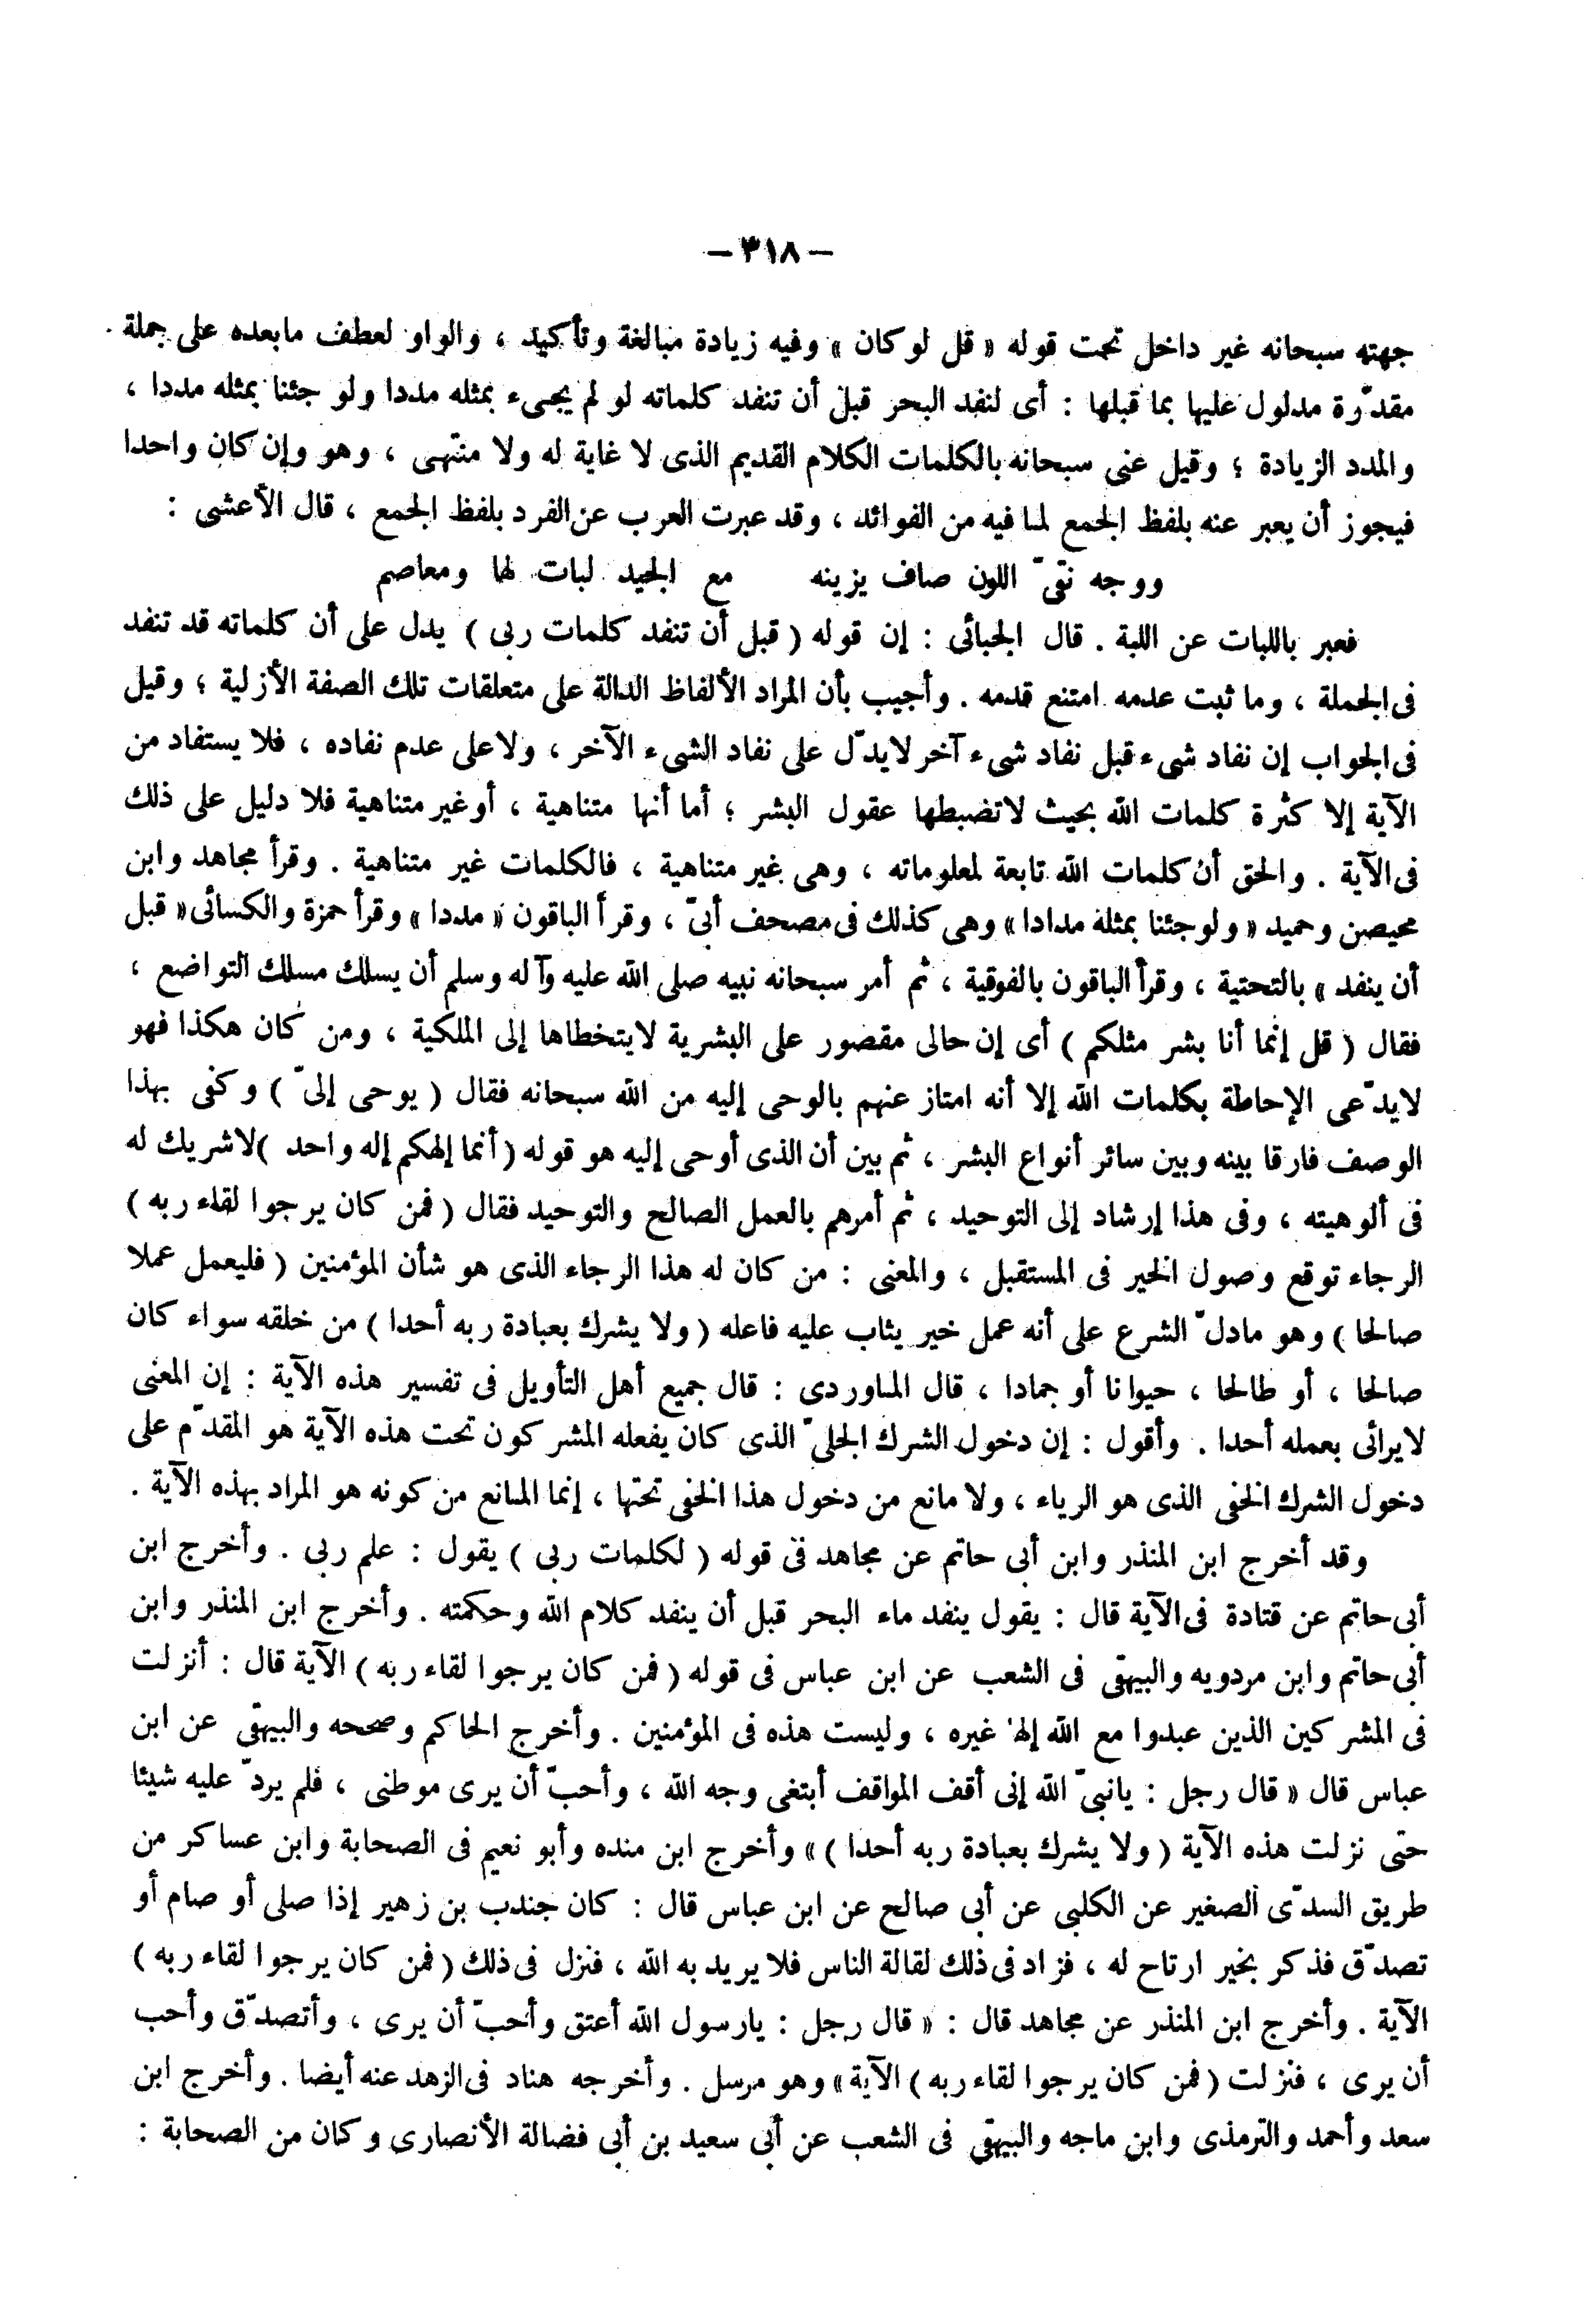 — ٣١٨ —
جهته سبحانه غير داخل تحت قوله « قل لو كان » وفيه زيادة مبالغة وتأكيد ، والواو لعطف مابعده على جملة
مقدّرة مدلول عليها بما قبلها : أى لنفد البحر قبل أن تنفد كلماته لو لم يجىء بمثله مددا ولو جئنا بمثله مددا ،
والمدد الزيادة ؛ وقيل عنى سبحانه بالكلمات الكلام القديم الذى لا غاية له ولا منتهى ، وهو وإن كان واحدا
فيجوز أن يعبر عنه بلفظ الجمع لما فيه من الفوائد ، وقد عبرت العرب عن الفرد بلفظ الجمع ، قال الأعشى :
ووجه نقىّ اللون صاف يزينه مع الجيد لبات لها ومعاصم
فعبر باللبات عن اللبة . قال الجبائى : إن قوله ( قبل أن تنفد كلمات ربى ) يدل على أن كلماته قد تنفد
فى الجملة ، وما ثبت عدمه امتنع قدمه . وأجيب بأن المراد الألفاظ الدالة على متعلقات تلك الصفة الأزلية ؛ وقيل
فى الجواب إن نفاد شىء قبل نفاد شىء آخر لايدّل على نفاد الشىء الآخر ، ولا على عدم نفاده ، فلا يستفاد من
الآية إلا كثرة كلمات الله بحيث لاتضبطها عقول البشر ؛ أما أنها متناهية ، أو غير متناهية فلا دليل على ذلك
فى الآية . والحق أن كلمات الله تابعة لمعلوماته ، وهى غير متناهية ، فالكلمات غير متناهية . وقرأ مجاهد وابن
محيصن وحميد « ولو جئنا بمثله مدادا » وهى كذلك فى مصحف أبىّ ، وقرأ الباقون « مددا » وقرأ حمزة والكسائى « قبل
أن ينفد » بالتحتية ، وقرأ الباقون بالفوقية ، ثم أمر سبحانه نبيه صلى الله عليه وآله وسلم أن يسلك مسلك التواضع ،
فقال ( قل إنما أنا بشر مثلكم ) أى إن حالى مقصور على البشرية لايتخطاها إلى الملكية ، ومن كان هكذا فهو
لايدّعى الإحاطة بكلمات الله إلا أنه امتاز عنهم بالوحى إليه من الله سبحانه فقال ( يوحى إلىّ ) وكفى بهذا
الوصف فارقا بينه وبين سائر أنواع البشر ، ثم بين أن الذى أوحى إليه هو قوله ( أنما إلهكم إله واحد )لا شريك له
فى ألوهيته ، وفى هذا إرشاد إلى التوحيد ، ثم أمرهم بالعمل الصالح والتوحيد فقال ( فمن كان يرجوا لقاء ربه )
الرجاء توقع وصول الخير فى المستقبل ، والمعنى : من كان له هذا الرجاء الذى هو شأن المؤمنين ( فليعمل عملا
صالحا ) وهو مادلّ الشرع على أنه عمل خير يثاب عليه فاعله ( ولا يشرك بعبادة ربه أحدا ) من خلقه سواء كان
صالحا ، أو طالحا ، حيوانا أو جمادا ، قال الماوردى : قال جميع أهل التأويل فى تفسير هذه الآية : إن المعنى
لايرائى بعمله أحدا . وأقول : إن دخول الشرك الجلىّ الذى كان يفعله المشركون تحت هذه الآية هو المقدّم على
دخول الشرك الخفى الذى هو الرياء ، ولا مانع من دخول هذا الخفى تحتها ، إنما المانع من كونه هو المراد بهذه الآية .
وقد أخرج ابن المنذر وابن أبى حاتم عن مجاهد فى قوله ( لكلمات ربى ) يقول : علم ربى . وأخرج ابن
أبى حاتم عن قتادة فى الآية قال : يقول ينفد ماء البحر قبل أن ينفد كلام الله وحكمته . وأخرج ابن المنذر وابن
أبى حاتم وابن مردويه والبيهقى فى الشعب عن ابن عباس فى قوله ( فمن كان يرجوا لقاء ربه ) الآية قال : أنزلت
فى المشركين الذين عبدوا مع الله إلها غيره ، وليست هذه فى المؤمنين . وأخرج الحاكم وصححه والبيهقى عن ابن
عباس قال « قال رجل : يانبىّ الله إنى أقف المواقف أبتغى وجه الله ، وأحبّ أن يرى موطنى ، فلم يردّ عليه شيئا
حتى نزلت هذه الآية ( ولا يشرك بعبادة ربه أحدا ) » وأخرج ابن منده وأبو نعيم فى الصحابة وابن عساكر من
طريق السدّى الصغير عن الكلبى عن أبى صالح عن ابن عباس قال : كان جندب بن زهير إذا صلى أو صام أو
تصدّق فذكر بخير ارتاح له ، فزاد فى ذلك لقالة الناس فلا يريد به الله ، فنزل فى ذلك ( فمن كان يرجوا لقاء ربه )
الآية . وأخرج ابن المنذر عن مجاهد قال : « قال رجل : يارسول الله أعتق وأحبّ أن يرى ، وأتصدّق وأحب
أن يرى ، فنزلت ( فمن كان يرجوا لقاء ربه ) الآية » وهو مرسل . وأخرجه هناد فى الزهد عنه أيضا . وأخرج ابن
سعد وأحمد والترمذى وابن ماجه والبيهقى فى الشعب عن أبى سعيد بن أبى فضالة الأنصارى وكان من الصحابة :